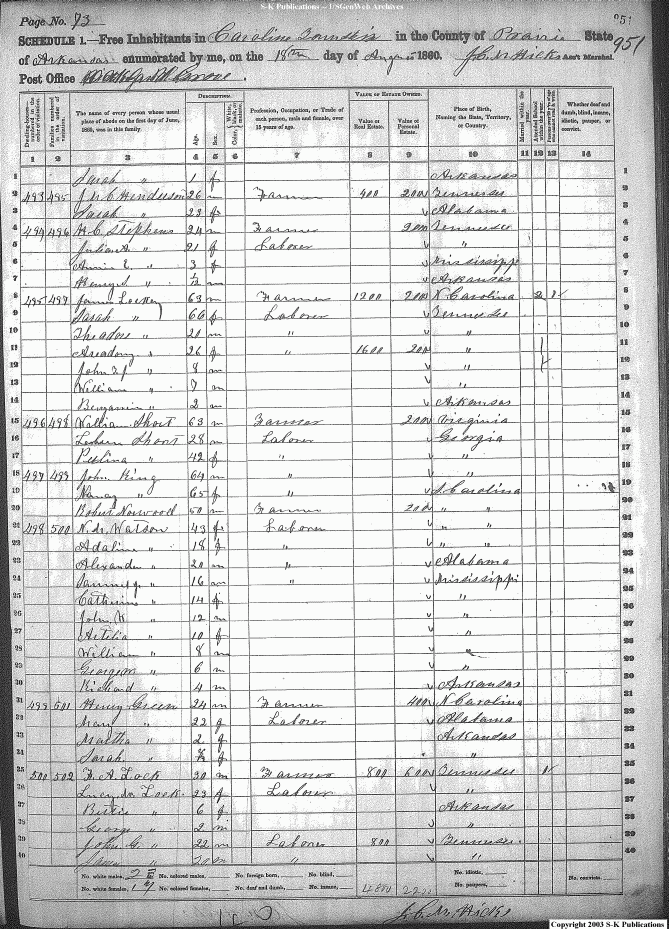 S-K Publications -- USGenWeb Archives
Page No. 93
951
SCHEDULE 1.—Free Inhabitants in Caroline Township in the County of Prairie State 951
of Arkansas enumerated by me, on the 18th day of August 1860. J. C. M Hicks Ass't Marshal.
Post Office Grove.
Dwelling-houses numbered in the order of visitation.
Families numbered in the order of visitation.
The name of every person whose usual place of abode on the first day of June, 1860, was in this family.
DESCRIPTION.
Age.
Sex.
Color,
Profession, Occupation, or Trade of each person, male and female, over 15 years of age.
VALUE OF ESTATE OWNED.
Value of Real Estate.
Value of Personal Estate.
Place of Birth, Naming the State, Territory, or Country.
Married within the year.
Attended School within the year.
Whether deaf and dumb, blind, insane, idiotic, pauper, or convict.
1 2 3 4 5 6 7 8 9 10 11 12 13 14
1 Sarah " 1 f Arkansas 1
2 493 495 J. N. C Henderson 26 m Farmer 400 200 Tennessee 2
3 Sarah " 23 f Alabama 3
4 494 496 H. C. Stephens 24 m Farmer 200 Tennessee 4
5 " 21 f Laborer " 5
6 Annie E. " 3 f Mississippi 6
7 Henry " /12 m Arkansas 7
8 495 497 James Lockey 63 m Farmer 1200 200 N Carolina 8
9 Sarah " 60 f Laborer Tennessee 9
10 " 20 m " " 10
11 " 26 f " 1600 200 " 11
12 John " 8 m " 12
13 William " 7 m " 13
14 Benjamin " 2 m Arkansas 14
15 496 498 William Short 63 m Farmer 200 Virginia 15
16 Short 28 m Laborer Georgia 16
17 " 42 f " " 17
18 497 499 John King 64 m " " 18
19 Nancy " 65 f " S. Carolina 19
20 Robert Norwood 50 m Farmer 200 " " 20
21 498 500 N. M. Watson 43 f Laborer " " 21
22 Adaline " 18 f " " " 22
23 Alexander " 20 m " Alabama 23
24 " 16 m " Mississippi 24
25 Catherine " 14 f " 25
26 John W " 12 m " 26
27 Artelia " 10 f " 27
28 William " 8 m " 28
29 " 6 m " 29
30 Richard " 4 m Arkansas 30
31 499 501 Henry Green 24 m Farmer 400 N Carolina 31
32 Mary " 22 f Laborer Alabama 32
33 Martha " 2 f Arkansas 33
34 Sarah " f " 34
35 500 502 F. A. Lock 30 m Farmer 800 600 Tennessee 35
36 Lucy M Lock 23 f Laborer " 36
37 " 6 f Arkansas 37
38 George " 2 m " 38
39 John G. " 22 m Laborer 800 Tennessee 39
40 " 20 m " " 40
No. white males, No. colored males, No. foreign born, No. blind, No. idiotic, No. convicts,
No. white females, No. colored females, No. deaf and dumb, No. insane, No. paupers,
J. C. M. Hicks
Copyright 2003 S-K Publications